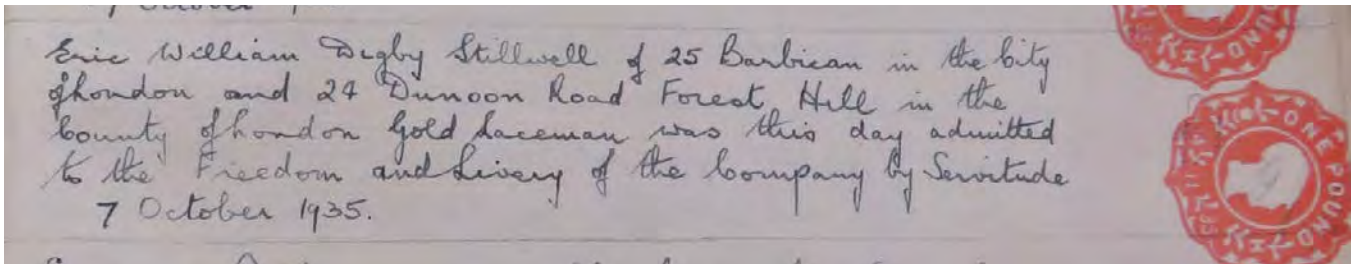 Eric William Digby Stillwell of 25 Barbican in the City
of London and 24 Dunoon Road Forest Hill in the
County of London Gold Laceman was this day admitted
to the Freedom and Livery of the Company by Servitude
7 October 1935.
ONE POUND